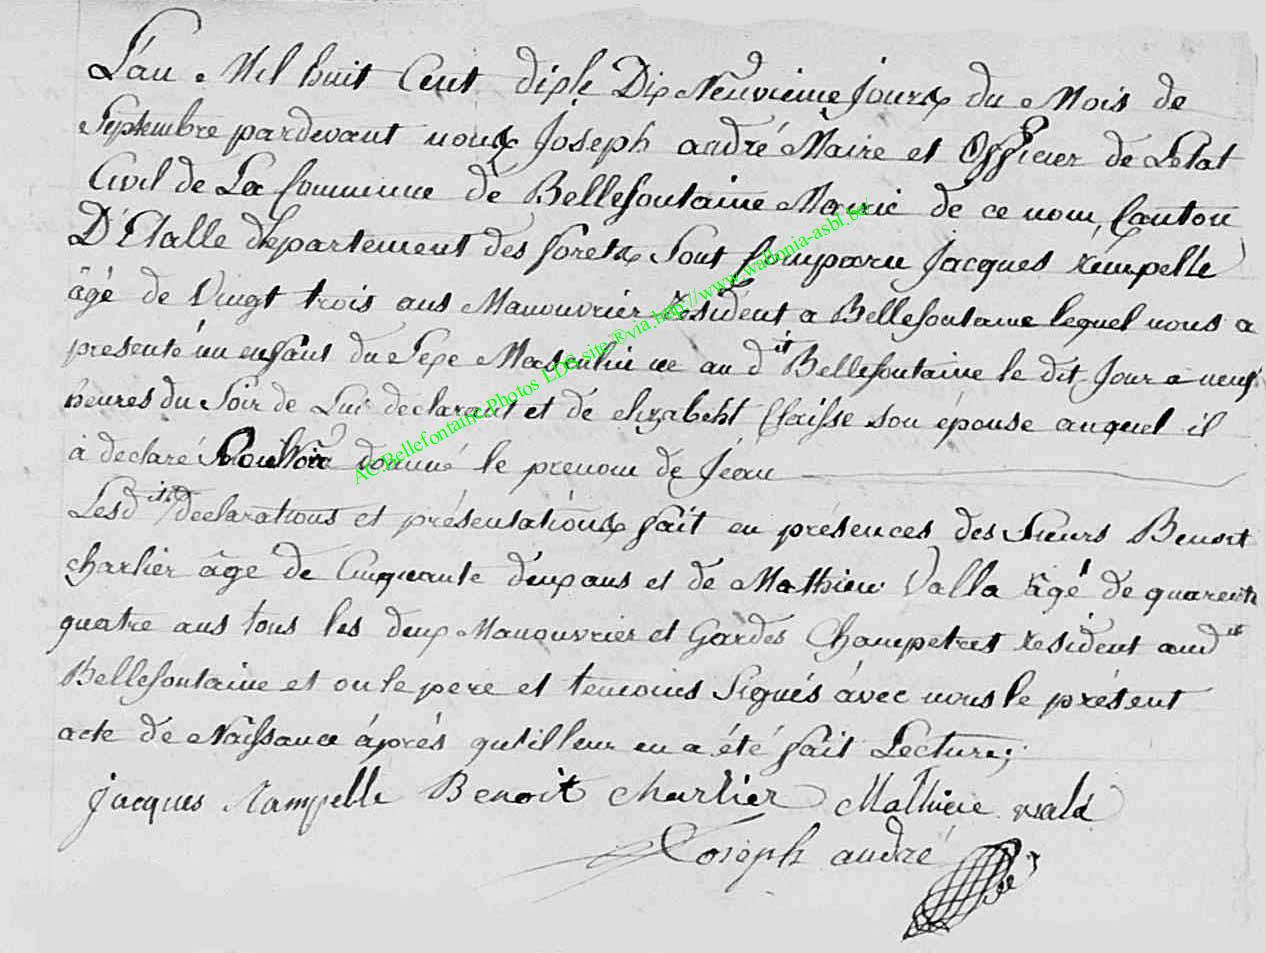 L'an Mil huit Cent dix le Dix Neuvieme Jours du Mois de
Septembre pardevant nous Joseph andré Maire et Officier de Letat
Civil de La Commune de Bellefontaine Mairie de ce nom, Canton
D'Etalle departement des forets Sont Comparu Jacques rempelle
âgé de Vingt trois ans Manouvrier résident a Bellefontaine lequel nous a
presenté un enfant du Sexe Masculin né au dit Bellefontaine le dit Jour a neuf
heures du Soir de Lui declarant et de elizabeht Claisse son épouse auquel il
à declaré Vouloir donné le prenom de Jean
Lesdits declarations et présentations fait en présences des Sieurs Benoit
charlier âge de Cinquante deux ans et de Mathieu Valla âgé de quarente
quatre ans tous les deux Manouvrier et Gardes Champetres resident audit
Bellefontaine et ont le pere et temoins Signés avec nous le présent
acte de Naissance áprés qu'il leur en a été fait Lecture;
jacques Rampelle Benoit charlier Mathieu wala
Joseph andré
AC Bellefontaine Photos LDS site ® via http://www.wallonia-asbl.be